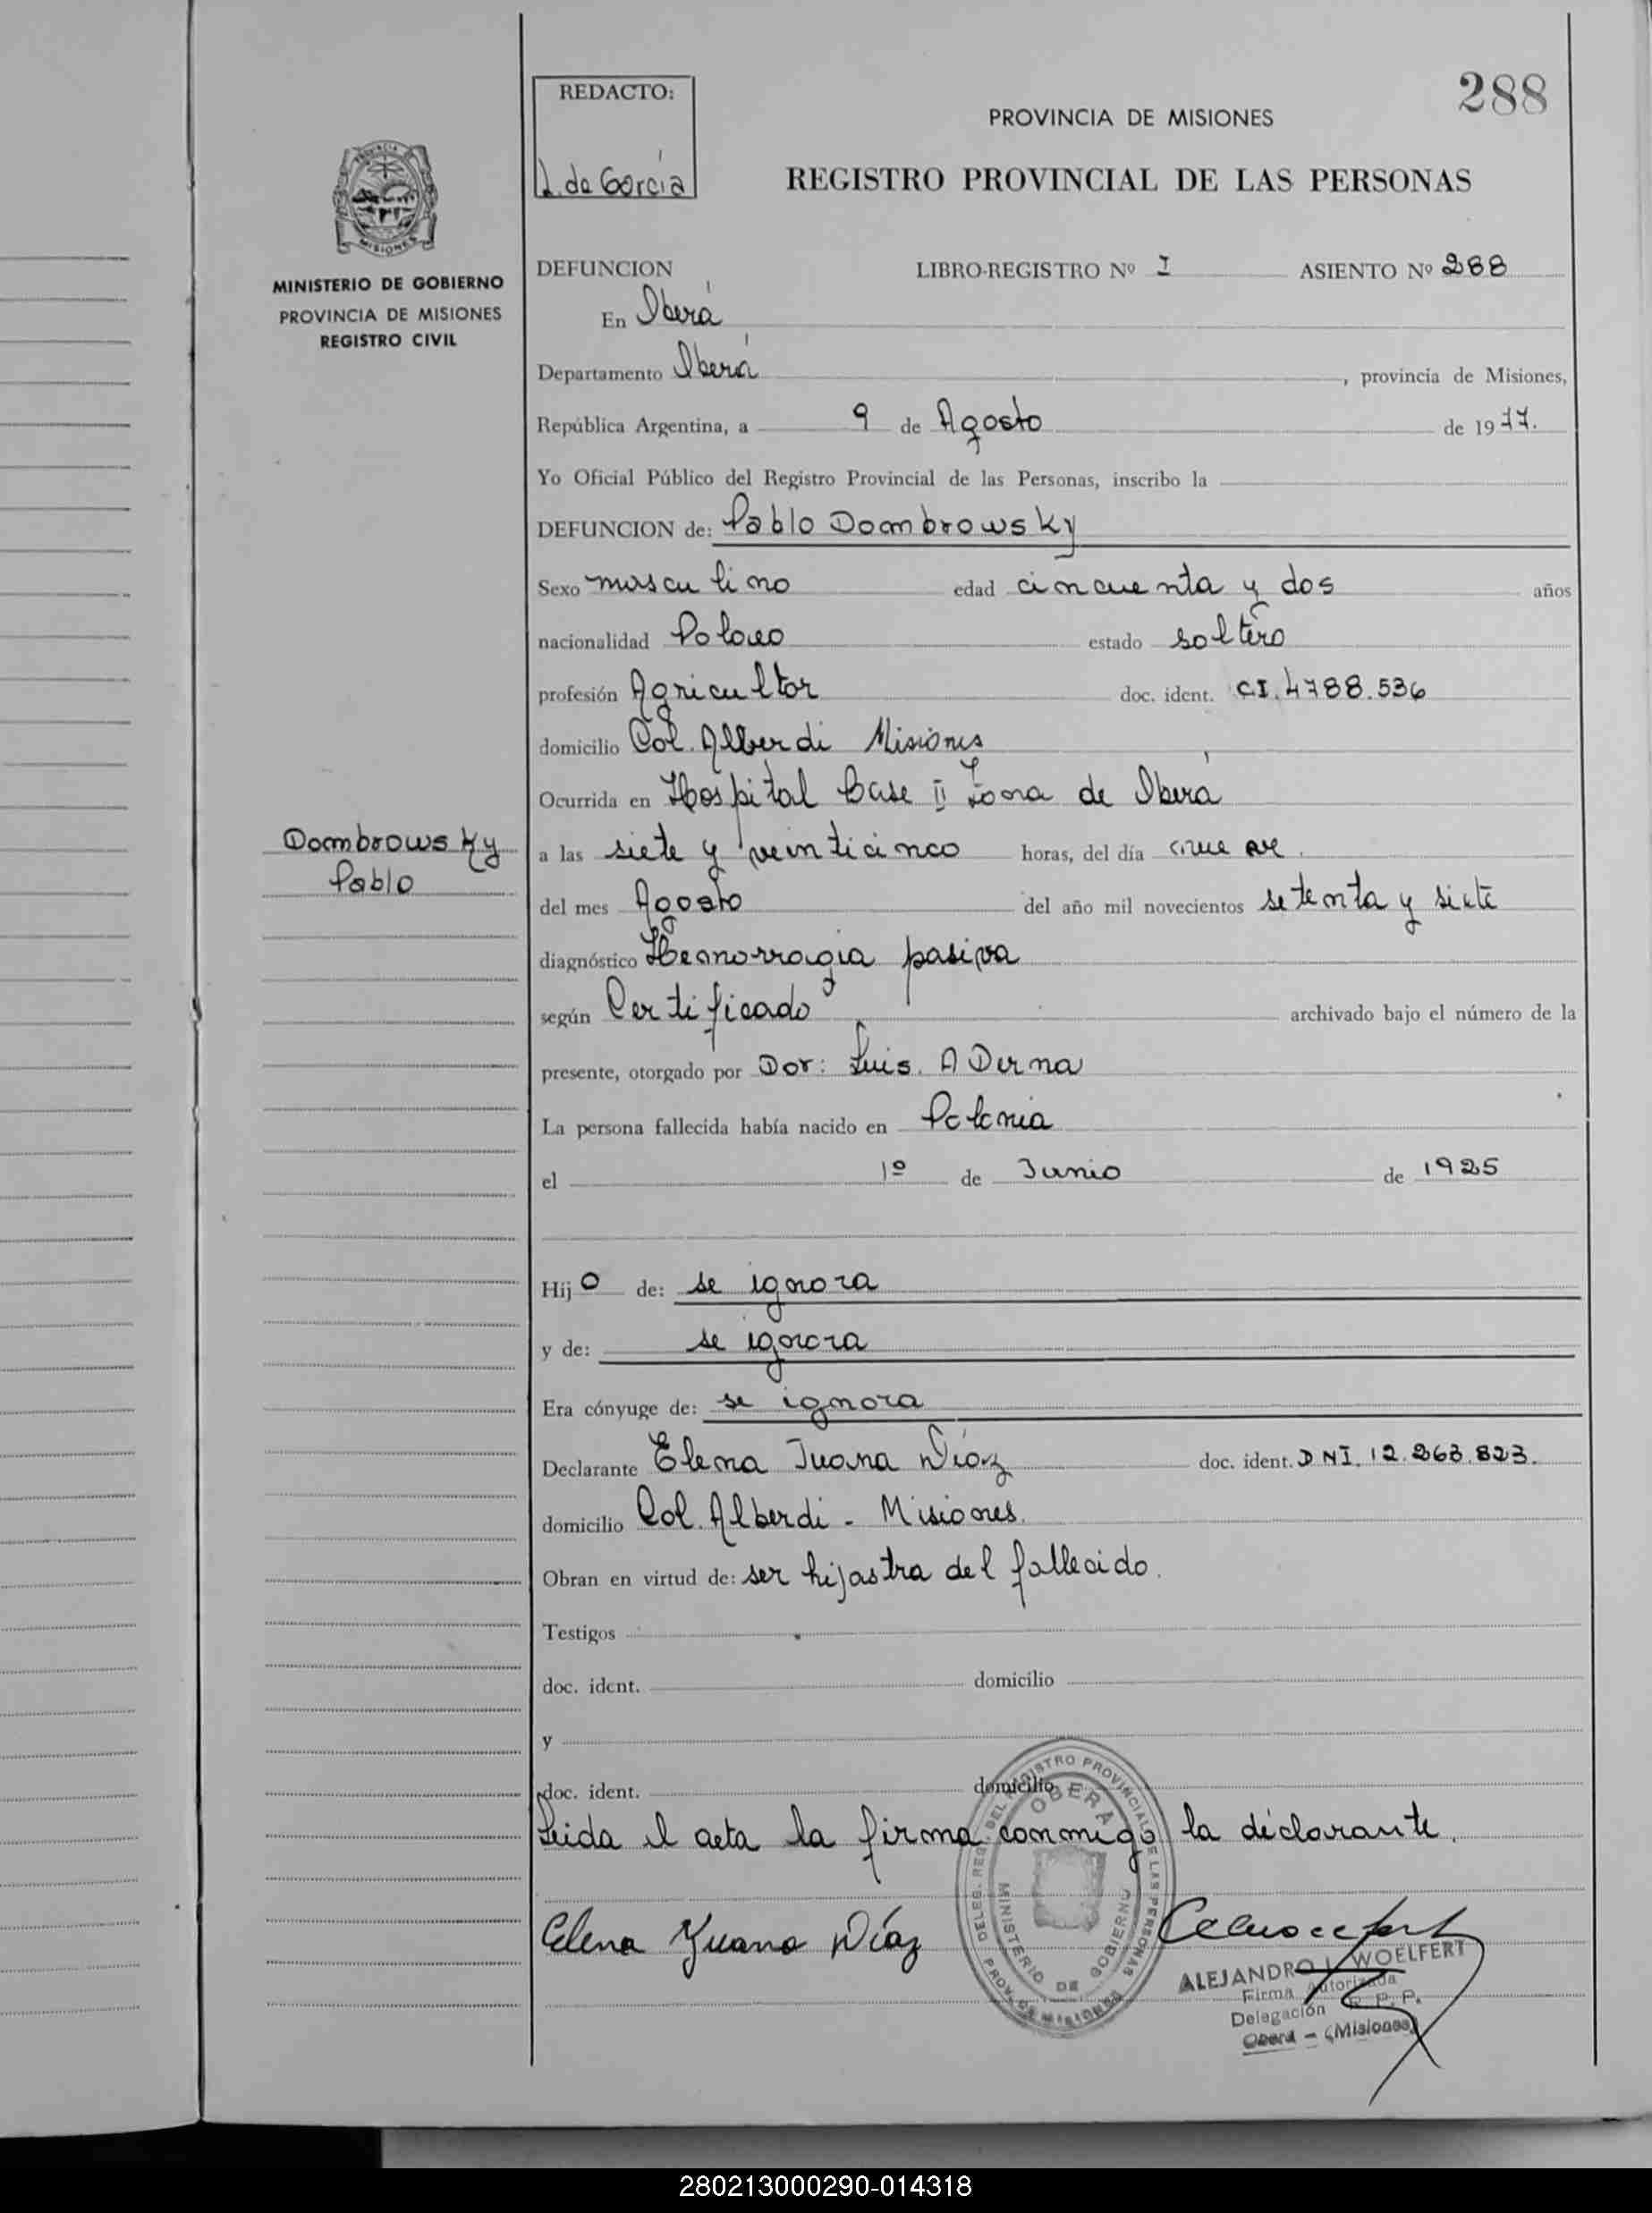 288
REDACTO:
L. de García
PROVINCIA DE MISIONES
REGISTRO PROVINCIAL DE LAS PERSONAS
MINISTERIO DE GOBIERNO
PROVINCIA DE MISIONES
REGISTRO CIVIL
DEFUNCION LIBRO-REGISTRO Nº I ASIENTO Nº 288
En Oberá
Departamento Oberá, provincia de Misiones,
República Argentina, a 9 de Agosto de 1977.
Yo Oficial Público del Registro Provincial de las Personas, inscribo la
DEFUNCION de: Pablo Dombrowsky
Sexo masculino edad cincuenta y dos años
nacionalidad Polaco estado soltero
profesión Agricultor doc. ident. C.I. 4788.536
domicilio Col. Alberdi Misiones
Ocurrida en Hospital Base II Zona de Oberá
Dombrowsky
Pablo
a las siete y veinticinco horas, del día
del mes Agosto del año mil novecientos setenta y siete
diagnóstico Hemorragia pasiva
según Certificado archivado bajo el número de la
presente, otorgado por Dor: Luis. A
La persona fallecida había nacido en Polonia
el 1º de Junio de 1925
Hijo de: se ignora
y de: se ignora
Era cónyuge de: se ignora
Declarante Elena Juana Díaz doc. ident. DNI. 12.263.823.
domicilio Col. Alberdi - Misiones.
Obran en virtud de: ser hijastra del fallecido.
Testigos
doc. ident. domicilio
y
doc. ident. domicilio
Leida el acta la firma conmigo la declarante.
Elena Juana Díaz
DELEG. REG. DEL REGISTRO PROVINCIAL DE LAS PERSONAS
OBERA
MINISTERIO DE GOBIERNO
PROV. DE MISIONES
ALEJANDRO L. WOELFERT
Firma Autorizada
Delegación R. P. P.
Oberá - (Misiones)
280213000290-014318